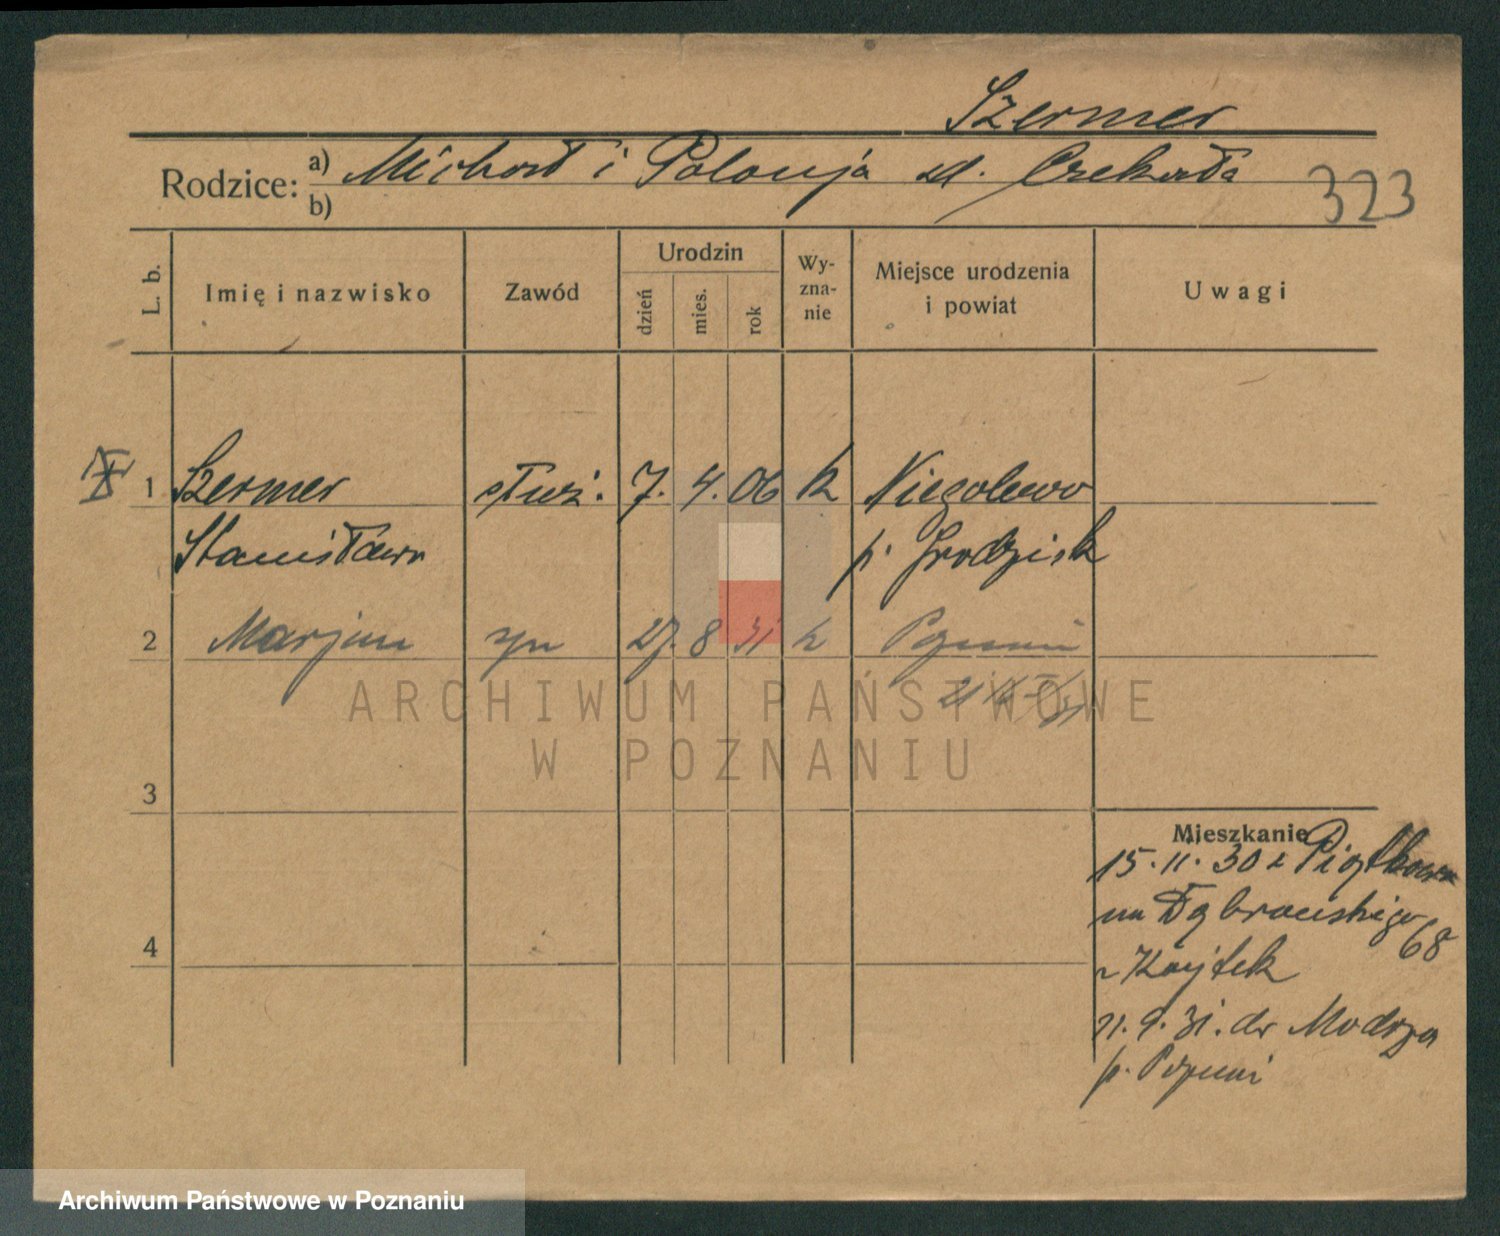 Szermer
Rodzice: a) Michał i Polonja zd. Czekała
b)
323
L. b.
Imię i nazwisko
Zawód
Urodzin
dzień
mies.
rok
Wy-
zna-
nie
Miejsce urodzenia
i powiat
Uwagi
1 Szermer służ. 7. 4. 06 k Niegolewo
Stanisława p. Grodzisk
2 Marjan syn 27. 8 31 k Poznań
3
4
Mieszkanie
15.11.30 z Piątkowa
na Dąbrowskiego 68
11.9.31. do
p. Poznań
ARCHIWUM PAŃSTWOWE
W POZNANIU
Archiwum Państwowe w Poznaniu